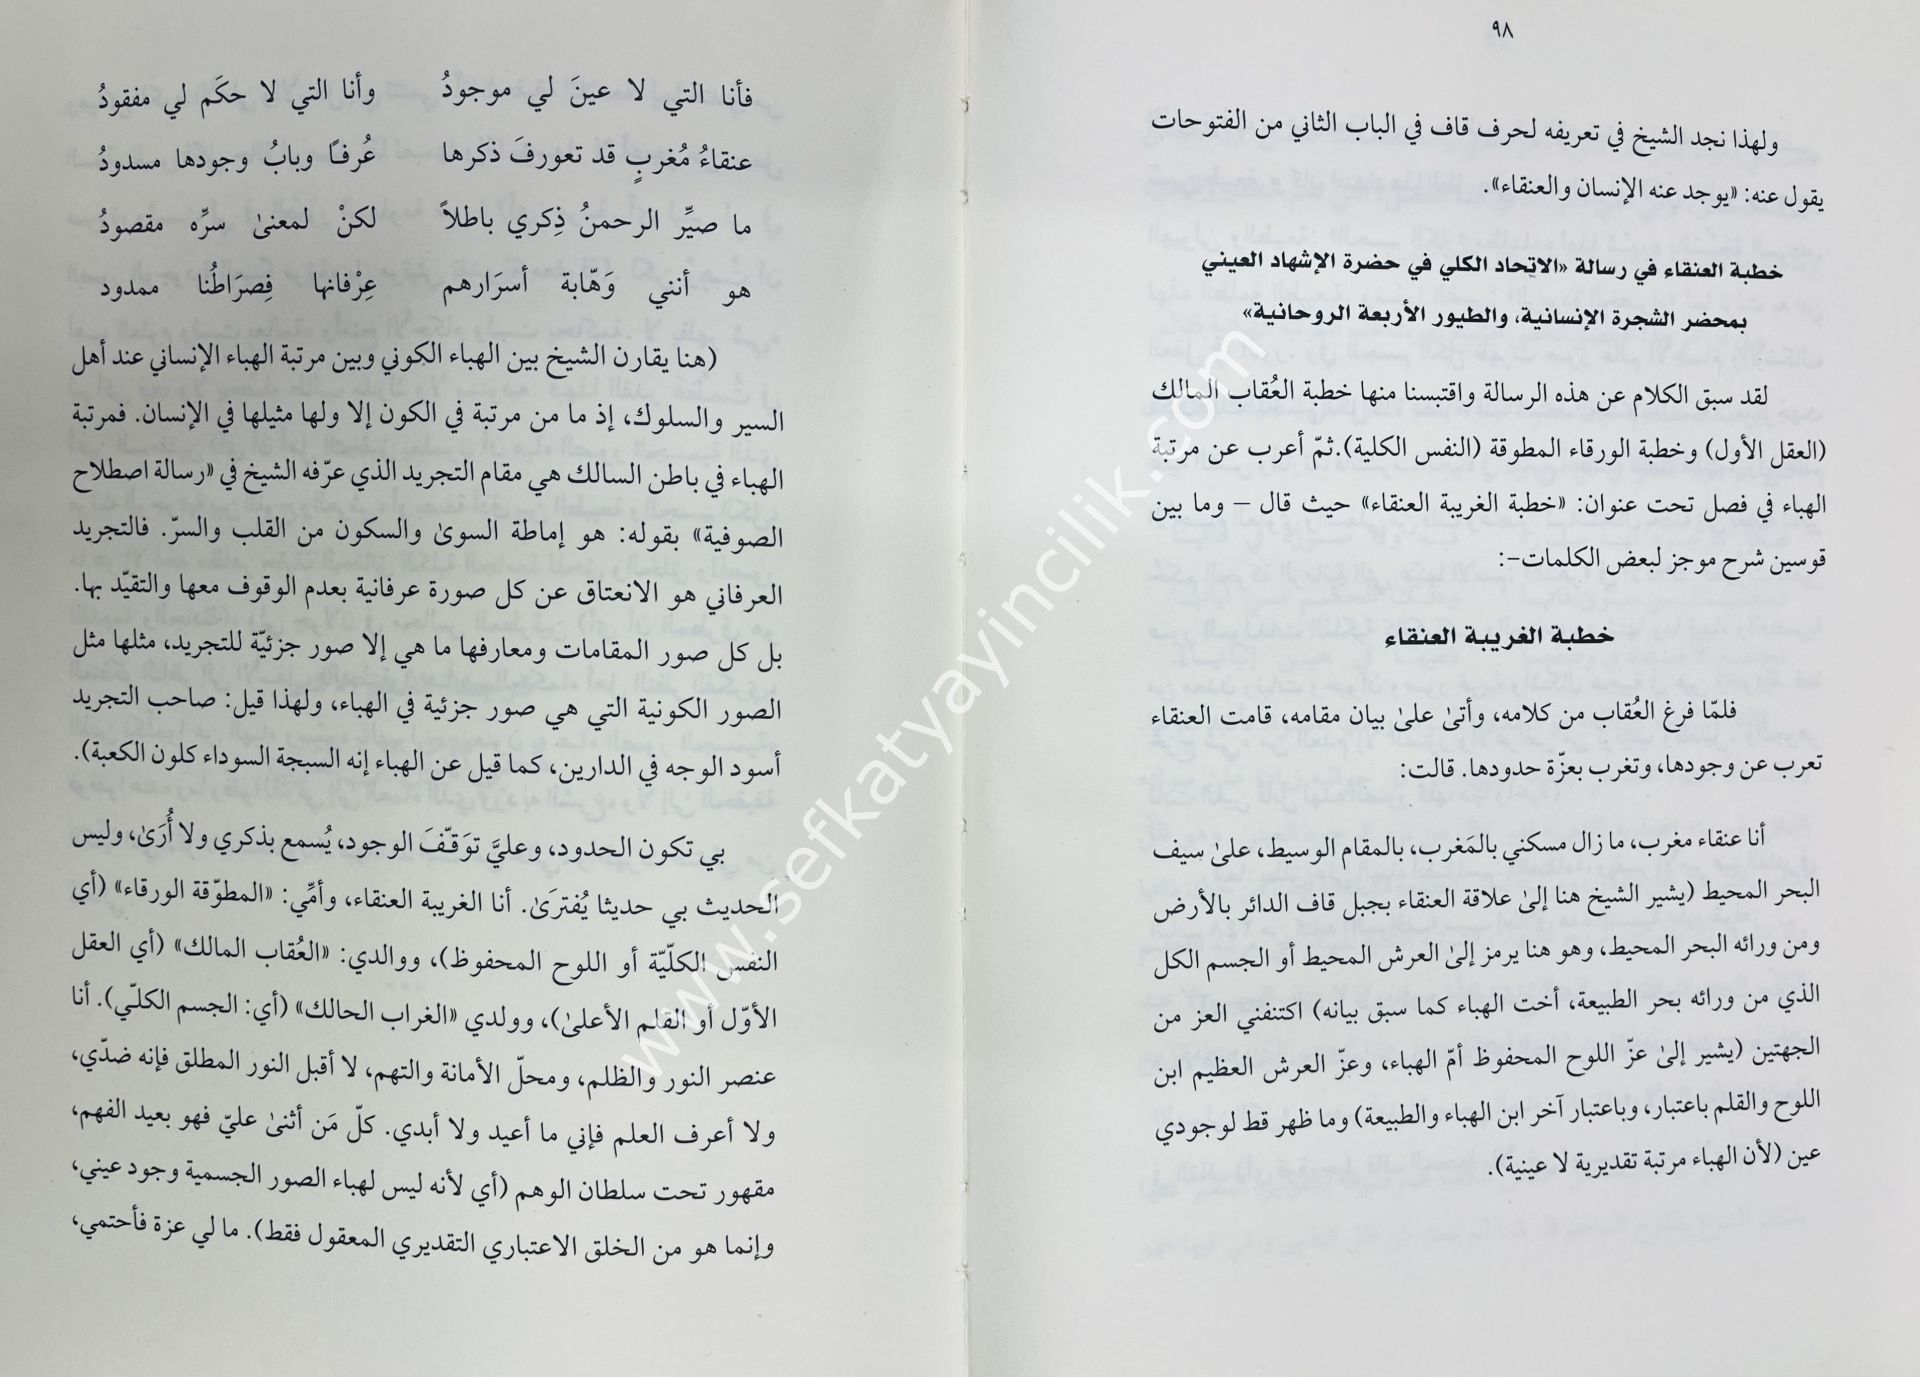 ٩٨
ولهذا نجد الشيخ في تعريفه لحرف قاف في الباب الثاني من الفتوحات
يقول عنه: «يوجد عنه الإنسان والعنقاء».
خطبة العنقاء في رسالة «الاتحاد الكلي في حضرة الإشهاد العيني
بمحضر الشجرة الإنسانية، والطيور الأربعة الروحانية»
لقد سبق الكلام عن هذه الرسالة واقتبسنا منها خطبة العُقاب المالك
(العقل الأول) وخطبة الورقاء المطوقة (النفس الكلية).ثمّ أعرب عن مرتبة
الهباء في فصل تحت عنوان: «خطبة الغريبة العنقاء» حيث قال – وما بين
قوسين شرح موجز لبعض الكلمات–:
خطبة الغريبة العنقاء
فلمّا فرغ العُقاب من كلامه، وأتىٰ علىٰ بيان مقامه، قامت العنقاء
تعرب عن وجودها، وتغرب بعزّة حدودها. قالت:
أنا عنقاء مغرب، ما زال مسكني بالمَغرب، بالمقام الوسيط، علىٰ سيف
البحر المحيط (يشير الشيخ هنا إلىٰ علاقة العنقاء بجبل قاف الدائر بالأرض
ومن ورائه البحر المحيط، وهو هنا يرمز إلىٰ العرش المحيط أو الجسم الكل
الذي من ورائه بحر الطبيعة، أخت الهباء كما سبق بيانه) اكتنفني العز من
الجهتين (يشير إلىٰ عزّ اللوح المحفوظ أمّ الهباء، وعزّ العرش العظيم ابن
اللوح والقلم باعتبار، وباعتبار آخر ابن الهباء والطبيعة) وما ظهر قط لوجودي
عين (لأن الهباء مرتبة تقديرية لا عينية).
فأنا التي لا عينَ لي موجودُ وأنا التي لا حكَم لي مفقودُ
عنقاءُ مُغربٍ قد تعورفَ ذكرها عُرفـًا وبابُ وجودها مسدودُ
ما صيِّر الرحمنُ ذِكري باطلاً لكنْ لمعنىٰ سرِّه مقصودُ
هو أنني وَهّابة أسرَارهم عِرْفانها فِصرَاطُنا ممدود
(هنا يقارن الشيخ بين الهباء الكوني وبين مرتبة الهباء الإنساني عند أهل
السير والسلوك، إذ ما من مرتبة في الكون إلا ولها مثيلها في الإنسان. فمرتبة
الهباء في باطن السالك هي مقام التجريد الذي عرّفه الشيخ في «رسالة اصطلاح
الصوفية» بقوله: هو إماطة السوىٰ والسكون من القلب والسرّ. فالتجريد
العرفاني هو الانعتاق عن كل صورة عرفانية بعدم الوقوف معها والتقيّد بها.
بل كل صور المقامات ومعارفها ما هي إلا صور جزئيّة للتجريد، مثلها مثل
الصور الكونية التي هي صور جزئية في الهباء، ولهذا قيل: صاحب التجريد
أسود الوجه في الدارين، كما قيل عن الهباء إنه السبجة السوداء كلون الكعبة).
بي تكون الحدود، وعليَّ توَقـّفَ الوجود، يُسمع بذكري ولا أُرَىٰ، وليس
الحديث بي حديثا يُفترَىٰ. أنا الغريبة العنقاء، وأمِّي: «المطوّقة الورقاء» (أي
النفس الكلّيّة أو اللوح المحفوظ)، ووالدي: «العُقاب المالك» (أي العقل
الأوّل أو القلم الأعلىٰ)، وولدي «الغراب الحالك» (أي: الجسم الكلّي). أنا
عنصر النور والظلم، ومحلّ الأمانة والتهم، لا أقبل النور المطلق فإنه ضدّي،
ولا أعرف العلم فإني ما أعيد ولا أبدي. كلّ مَن أثنىٰ عليّ فهو بعيد الفهم،
مقهور تحت سلطان الوهم (أي لأنه ليس لهباء الصور الجسمية وجود عيني،
وإنما هو من الخلق الاعتباري التقديري المعقول فقط). ما لي عزة فأحتمي،
www.sefkatyayincilik.com